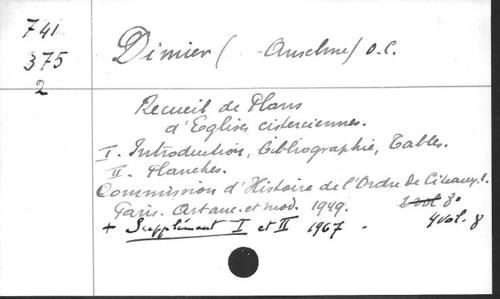 741
375
2
Dimier (Anselme) O.C.
Recueil de Plans
d'Eglises cisterciennes.
I. Introduction, bibliographie, Tables.
II. Planches.
Commission d'Histoire de l'Ordre de Citeaux, 1.
Paris. Art anc. et mod. 1949. 2 vol 8°
+ Supplément I et II 1967. 4 vol. 8